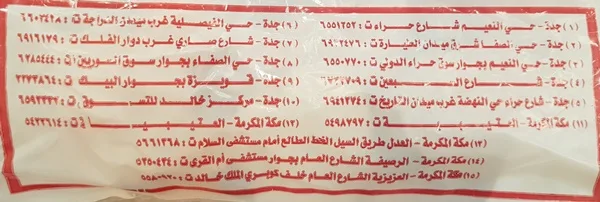 (١) جدة - حي النعيم شارع حراء ت : ٦٥٥١٢٥٢
(٢) جدة - حي الصفا شرق ميدان الطيارة ت :
(٣) جدة - حي النعيم بجوار سوق حراء الدولي ت : ٦٥٥٠٧٧٠
(٤) جدة - شارع السبعين ت :
(٥) جدة - شارع حراء حي النهضة غرب ميدان التاريخ ت : ٦٩٤١٣٧٤
(٦) جدة - حي الفيصلية غرب ميدان الدراجة ت :
(٧) جدة - شارع صاري غرب دوار الفلك ت : ٦٩١٦١٣٩
(٨) جدة - حي الصفاء بجوار سوق السوريين ت : ٦٧٨٥٤٤٤
(٩) جدة - قويزة بجوار البيك ت : ٢٧٣٣٨٦٤
(١٠) جدة - مركز خالد للتسوق ت : ٦٥٩٣٣٣٢
(١١) مكة المكرمة - العتيبية ت : ٥٤٩٨٧٩٧
(١٢) مكة المكرمة - العتيبية ت : ٥٤٣٣٦١٤
(١٣) مكة المكرمة - العدل طريق السيل الخط الطالع أمام مستشفى السلام ت : ٥٦٦١٣٦٨
(١٤) مكة المكرمة - الرصيفة الشارع العام بجوار مستشفى أم القرى ت : ٥٣٥٠٤٣٤
(١٥) مكة المكرمة - العزيزية الشارع العام خلف كوبري الملك خالد ت : ٥٥٨٠٩٢٠